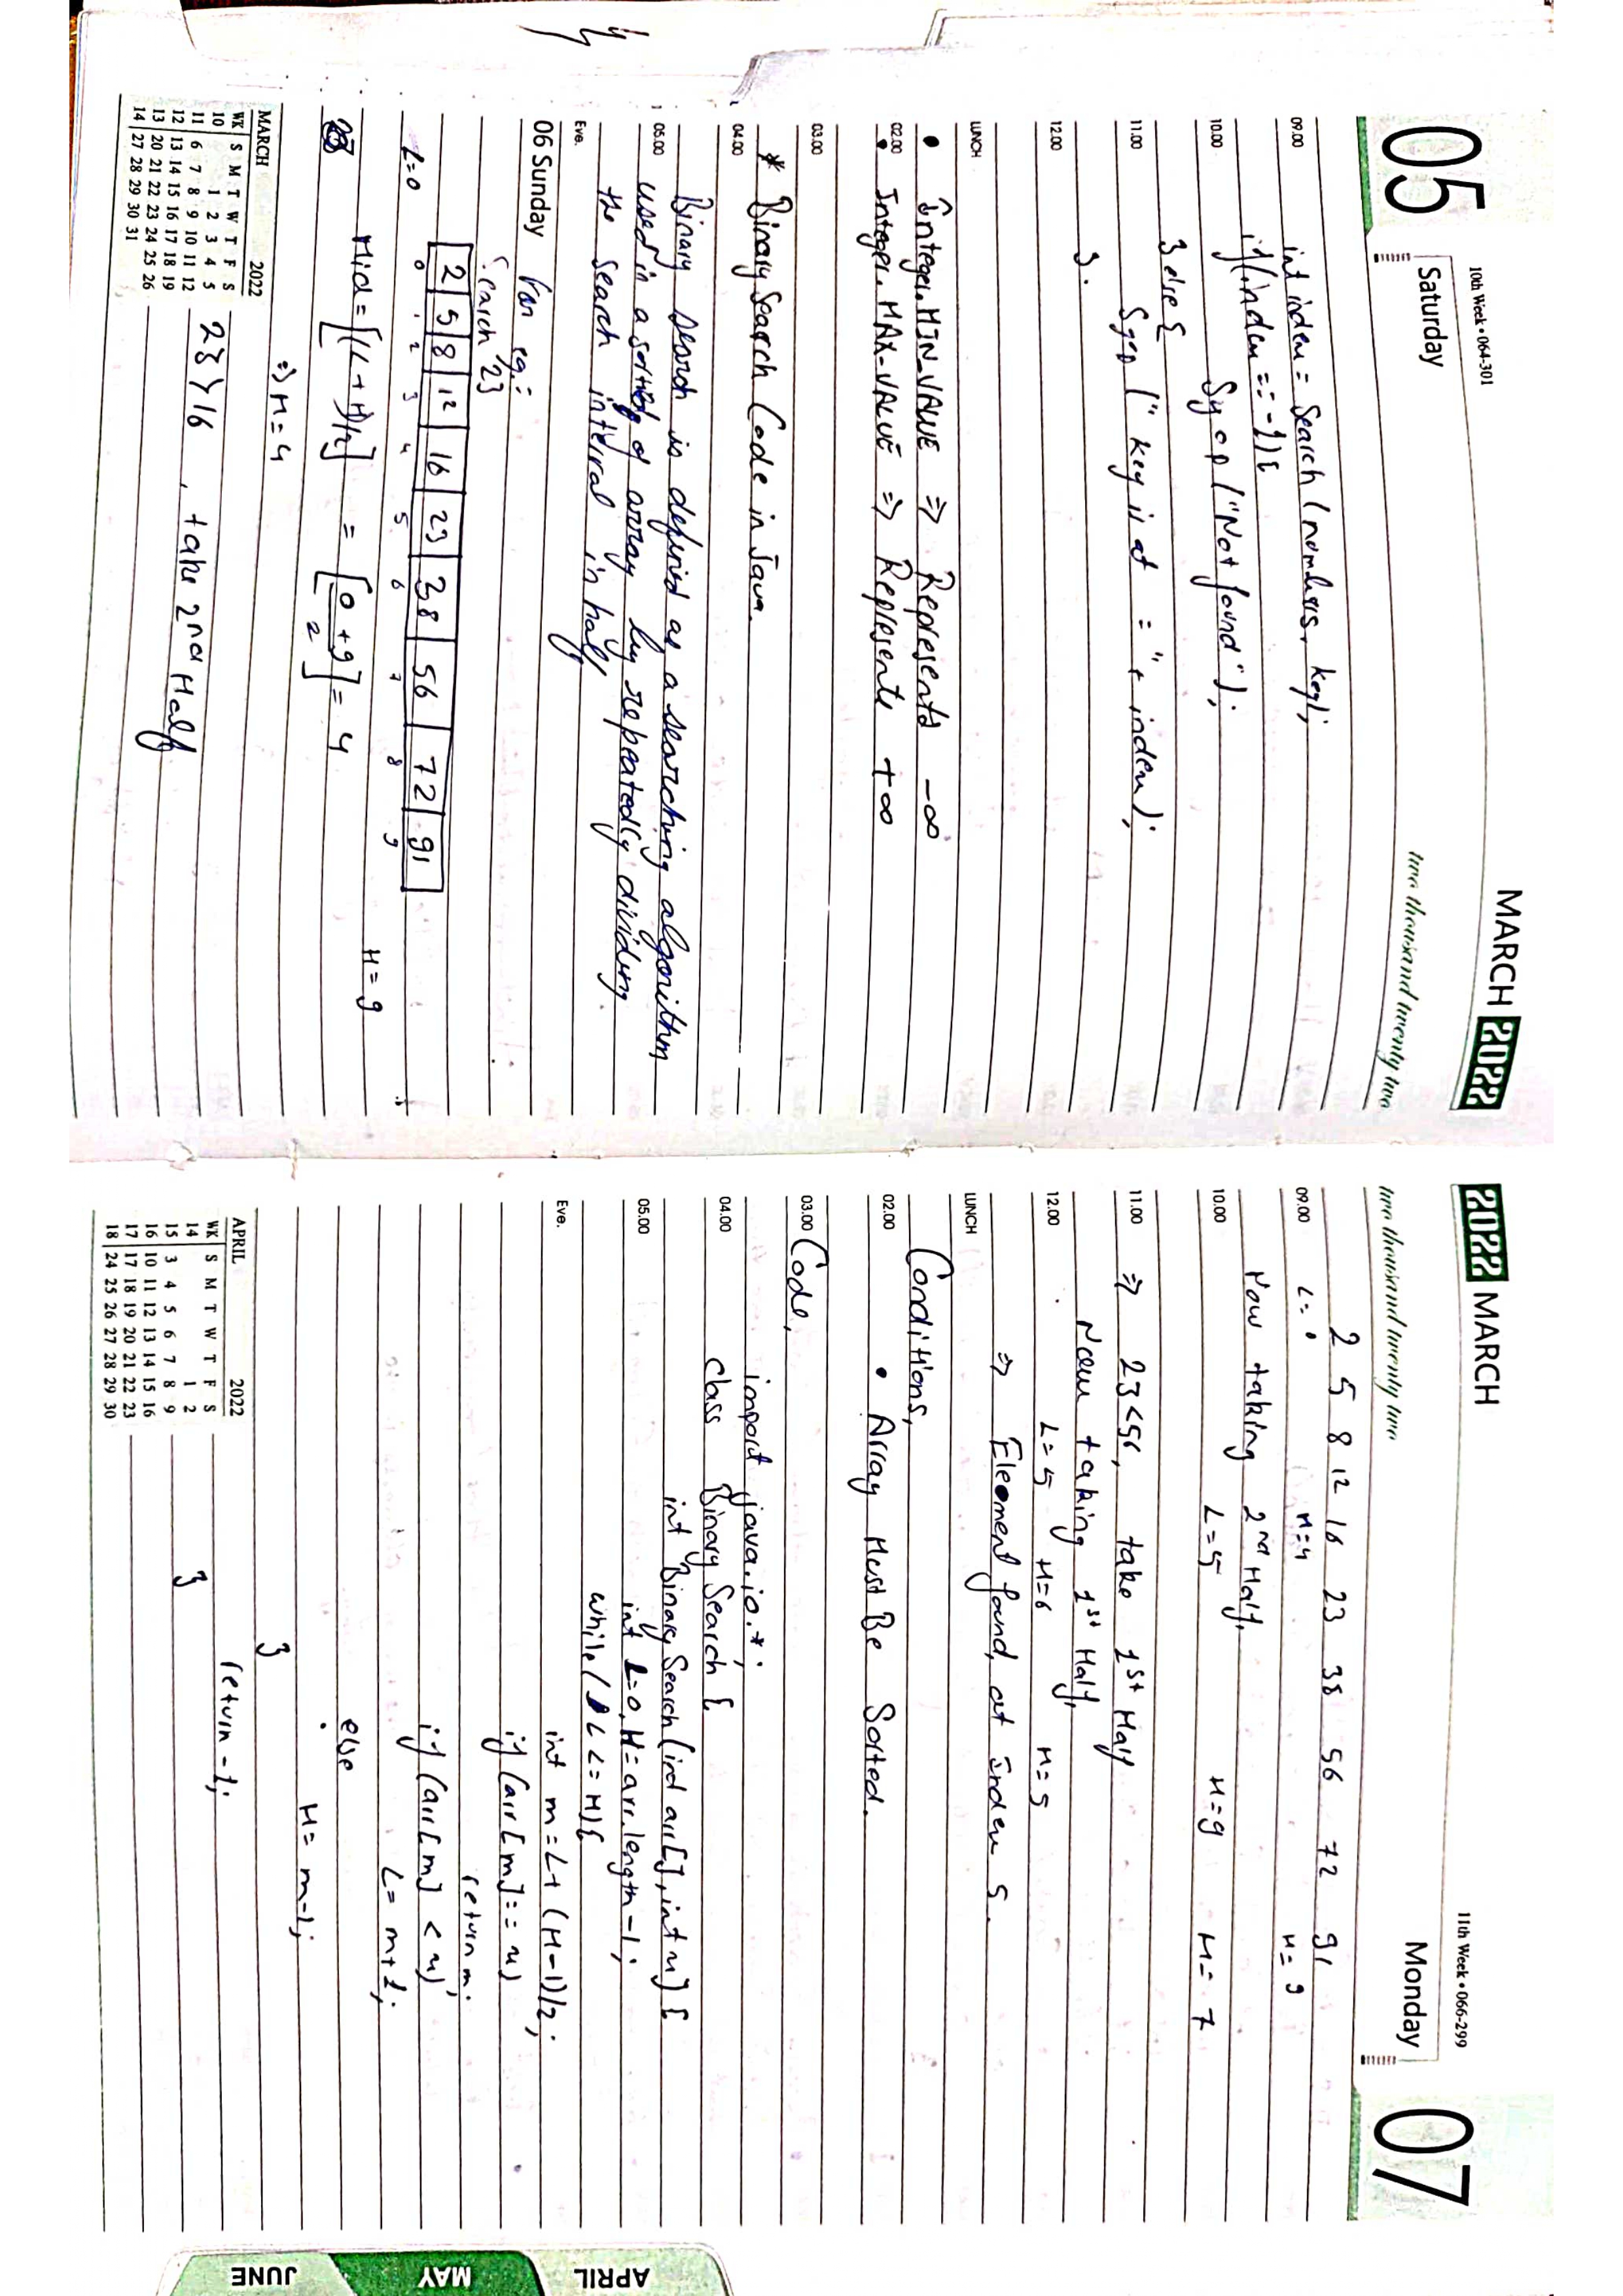 05
10th Week • 064-301
Saturday
MARCH 2022
two thousand twenty two
09.00
int index = Search (numbers, key);
if (index == -1) {
10.00
Syop ("Not found");
} else {
11.00
Syop (" key is at = " + index);
}.
12.00
LUNCH
• Integer.MIN_VALUE ⇒ Represents -∞
02.00
• Integer.MAX_VALUE ⇒ Represents +∞
03.00
* Binary Search Code in Java.
04.00
Binary search is defined as a searching algorithm
05.00
used in a sorted of array by repeatedly dividing
the search interval in half.
Eve.
06 Sunday
For eg.:
Search 23
2 5 8 12 16 23 38 56 72 91
0 1 2 3 4 5 6 7 8 9
L=0
H=9
Mid = [(L+H)/2] = [0+9/2] = 4
⇒ M=4
23 > 16 , take 2nd Half
MARCH 2022
WK S M T W T F S
10 1 2 3 4 5
11 6 7 8 9 10 11 12
12 13 14 15 16 17 18 19
13 20 21 22 23 24 25 26
14 27 28 29 30 31
2022 MARCH
two thousand twenty two
11th Week • 066-299
Monday
07
2 5 8 12 16 23 38 56 72 91
09.00
L= M=4 H=9
Now taking 2nd Half,
10.00
L=5 H=9 M=7
11.00
⇒ 23<56, take 1st Half
Now taking 1st Half,
12.00
L=5 H=6 M=5
⇒ Element found, at index 5.
LUNCH
Conditions,
02.00
• Array Must Be Sorted.
03.00
Code,
import java.io.*;
04.00
class Binary Search {
int Binary Search (int arr[], int x) {
05.00
int L=0, H=arr.length-1;
while (L<=H) {
Eve.
int m=L+(H-1)/2;
if (arr[m]==x)
return m;
if (arr[m] < x)
L=m+1;
else
H=m-1;
}
return -1;
}
APRIL 2022
WK S M T W T F S
14 1 2
15 3 4 5 6 7 8 9
16 10 11 12 13 14 15 16
17 17 18 19 20 21 22 23
18 24 25 26 27 28 29 30
APRIL
MAY
JUNE